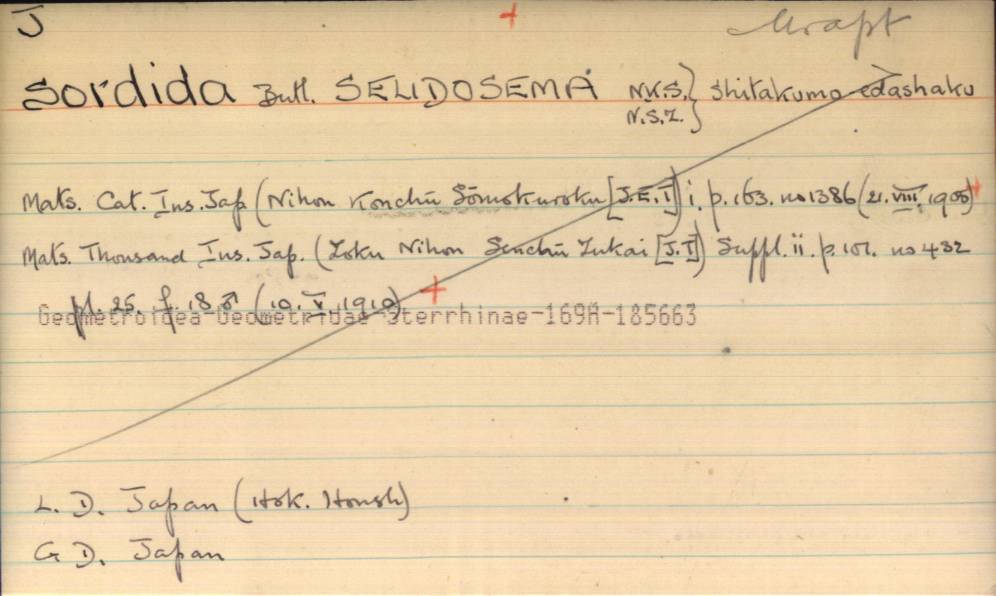 J
sordida Butl. SELIDOSEMA N.K.S. } Shitakumo-edashaku
N.S.Z.
Mats. Cat. Ins. Jap (Nihon Konchū Sōmokuroku [J.E.I]) i. p. 163. no 1386 (21. VIII. 1905)
Mats. Thousand Ins. Jap. (Zoku Nihon Senchū Zukai [J.I]) Suppl. ii. p. 101. no 432
pl. 25. f. 18 ♂ (10. V. 1910)
Geometroidea-Geometridae-Sterrhinae-169A-185663
L. D. Japan (Hok. Honsh)
G D. Japan